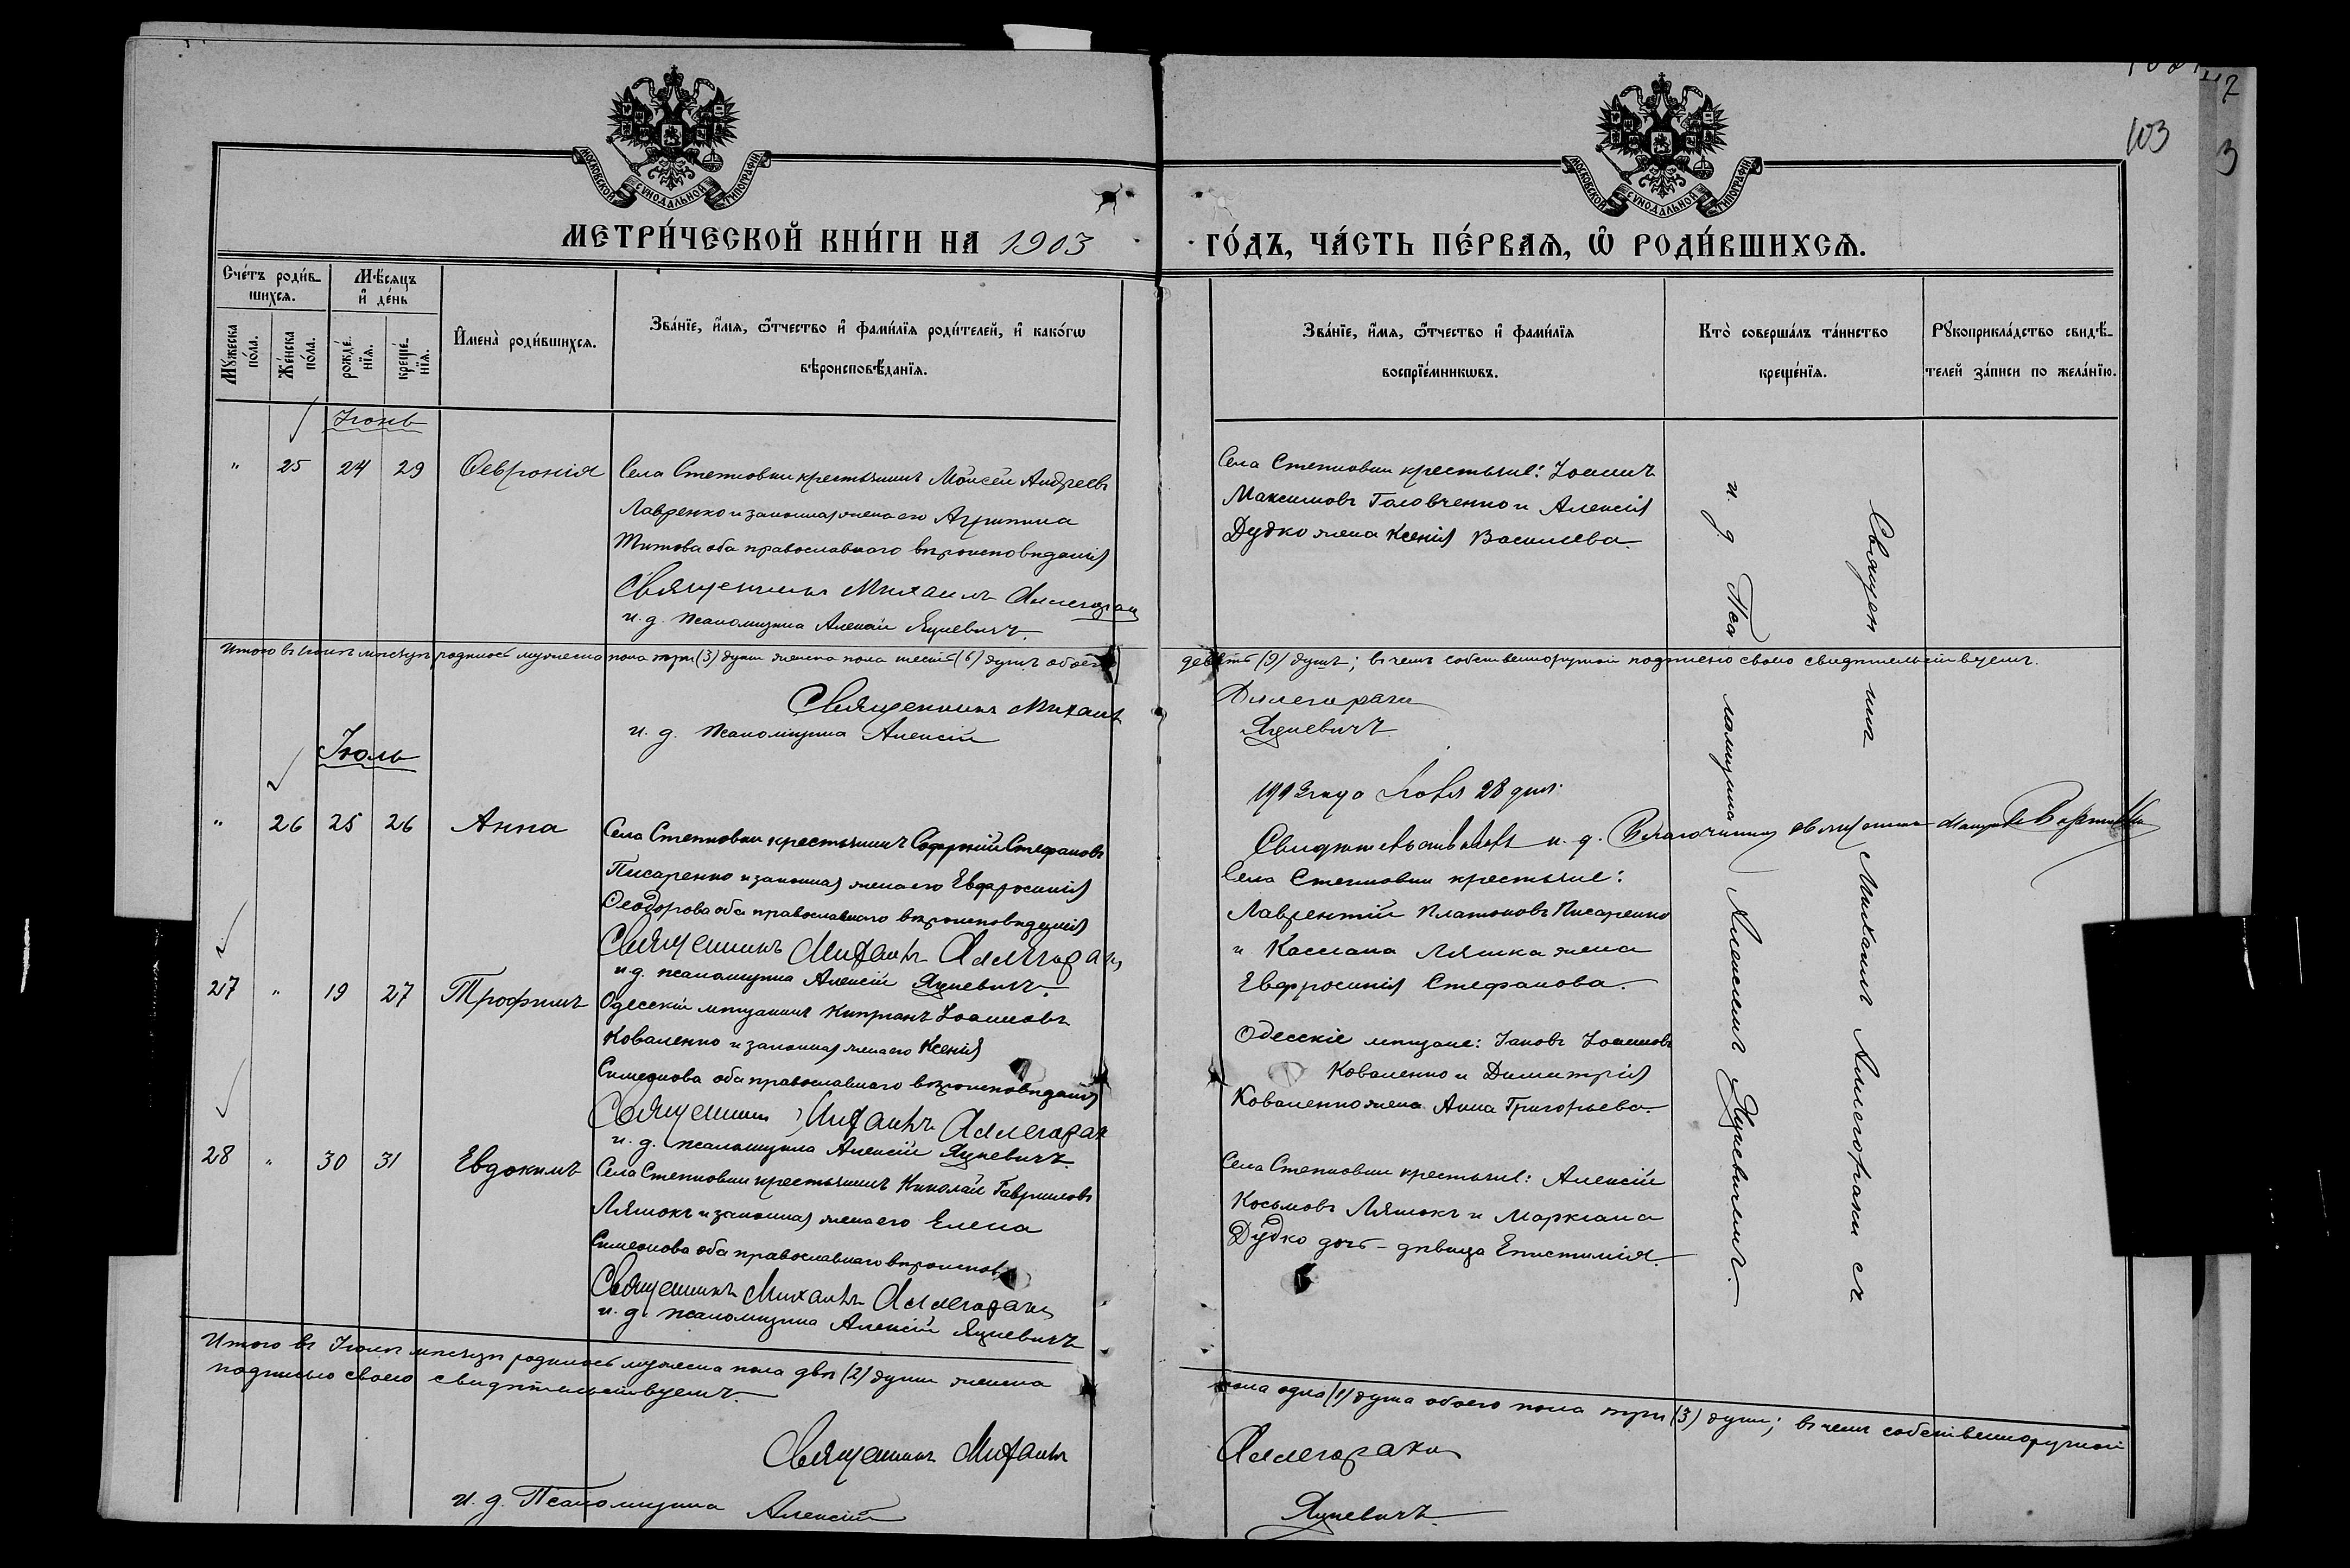 103
МОСКОВСКОЙ СУНОДАЛЬНОЙ ТИПОГРАФІИ
МОСКОВСКОЙ СУНОДАЛЬНОЙ ТИПОГРАФІИ
МЕТРИ́ЧЕСКОЙ КНИ́ГИ НА 1903
ГО́ДЪ, ЧА́СТЬ ПЕ́РВАѦ, Ѡ҆ РОДИ́ВШИХСѦ.
Сче́тъ роди́в-
шихсѧ.
Мꙋ́жеска по́ла.
Же́нска по́ла.
Мѣ́сѧцъ
и҆ де́нь
рожде́нїѧ.
креще́нїѧ.
И҆мена̀ роди́вшихсѧ.
Зва́нїе, и҆́мѧ, ѻ҆́тчество и҆ фами́лїѧ роди́телей, и҆ како́гѡ
вѣроисповѣ́данїѧ.
Зва́нїе, и҆́мѧ, ѻ҆́тчество и҆ фами́лїѧ
воспрїе́мникѡвъ.
Кто̀ соверша́лъ та́инство
креще́нїѧ.
Рꙋкоприкла́дство свидѣ́-
телей за́писи по жела́нїю.
Іюнь
" 25 24 29 Ѳевронія
Села Степковки крестьянинъ Моисей Андреевъ
Лавренко и законная жена его Агрипина
Титова оба православнаго вѣроисповѣданія
Священникъ Михаилъ Аллегораки
и. д. псаломщика Алексій Яцкевичъ.
Села Степковки крестьяне: Іоаннъ
Максимовъ Головченко и Алексія
Дудко жена Ксенія Васильева.
Итого въ Іюнѣ мѣсяцѣ родилось мужеска пола три (3) души женска пола шесть (6) душъ обоего
девять (9) душъ; въ чемъ собственноручной подписью своею свидѣтельствуемъ.
Священникъ Михаилъ
Аллегораки
и. д. псаломщика Алексій
Яцкевичъ
Іюль
1903 года 28 дня.
Свидѣтельствовалъ и. д. Благочиннаго священникъ
" 26 25 26 Анна
Села Степковки крестьянинъ Софроній Стефановъ
Писаренко и законная жена его Евфросинія
Ѳеодорова оба православнаго вѣроисповѣданія
Священникъ Михаилъ Аллегораки
и. д. псаломщика Алексій Яцкевичъ.
Села Степковки крестьяне:
Лаврентій Платоновъ Писаренко
и Кассіана Ляшка жена
Евфросинія Стефанова.
27 " 19 27 Трофимъ
Одесскій мѣщанинъ Кипріанъ Іоанновъ
Коваленко и законная жена его Ксенія
Симеонова оба православнаго вѣроисповѣданія
Священникъ Михаилъ Аллегораки
и. д. псаломщика Алексій Яцкевичъ.
Одесскіе мѣщане: Іаковъ Іоанновъ
Коваленко и Димитрія
Коваленко жена Анна Григорьева.
28 " 30 31 Евдокимъ
Села Степковки крестьянинъ Николай Гавриловъ
Ляшокъ и законная жена его Елена
Симеонова оба православнаго вѣроиспов.
Священникъ Михаилъ Аллегораки
и. д. псаломщика Алексій Яцкевичъ
Села Степковки крестьяне: Алексій
Косьмовъ Ляшокъ и Маркіана
Дудко дочь - дѣвица Епистимія.
Священникъ Михаилъ Аллегораки съ
и. д. Псаломщика Алексіемъ Яцкевичемъ.
Итого въ Іюлѣ мѣсяцѣ родилось мужеска пола двѣ (2) души женска
пола одна (1) душа обоего пола три (3) души; въ чемъ собственноручной
подписью своею свидѣтельствуемъ.
Священникъ Михаилъ
Аллегораки
и. д. Псаломщика Алексій
Яцкевичъ.